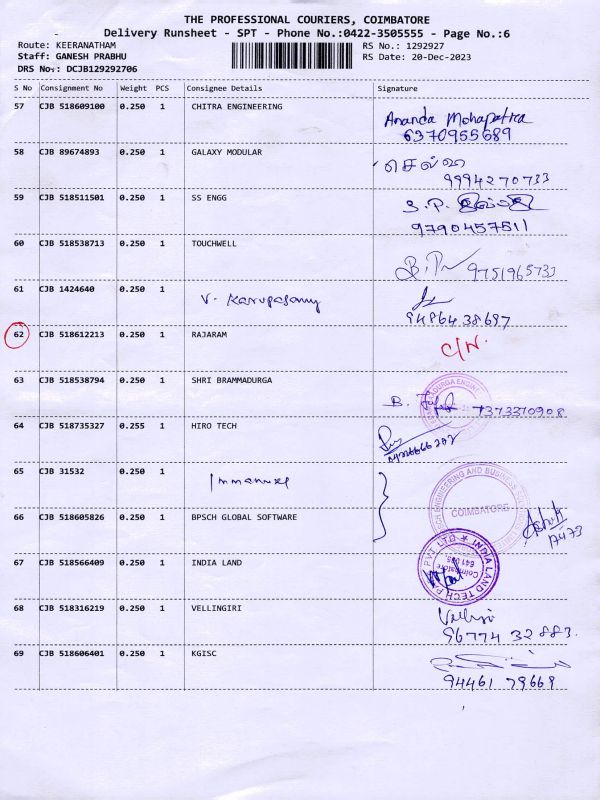 THE PROFESSIONAL COURIERS, COIMBATORE
Delivery Runsheet - SPT - Phone No.:0422-3505555 - Page No.:6
Route: KEERANATHAM RS No.: 1292927
Staff: GANESH PRABHU RS Date: 20-Dec-2023
DRS No.: DCJB129292706
S No Consignment No Weight PCS Consignee Details Signature
57 CJB 518609100 0.250 1 CHITRA ENGINEERING Ananda Mohapatra
6370955689
58 CJB 89674893 0.250 1 GALAXY MODULAR
9994270733
59 CJB 518511501 0.250 1 SS ENGG S.P.
9790457511
60 CJB 518538713 0.250 1 TOUCHWELL 9751965733
61 CJB 1424640 0.250 1 V. Karupasamy
9486438697
62 CJB 518612213 0.250 1 RAJARAM C/N.
63 CJB 518538794 0.250 1 SHRI BRAMMADURGA B. 7373370908
64 CJB 518735327 0.255 1 HIRO TECH
65 CJB 31532 0.250 1 Immanuel
COIMBATORE
66 CJB 518605826 0.250 1 BPSCH GLOBAL SOFTWARE
17473
67 CJB 518566409 0.250 1 INDIA LAND INDIA LAND TECH PVT LTD
Coimbatore
68 CJB 518316219 0.250 1 VELLINGIRI
96774 32883.
69 CJB 518606401 0.250 1 KGISC
94461 79669